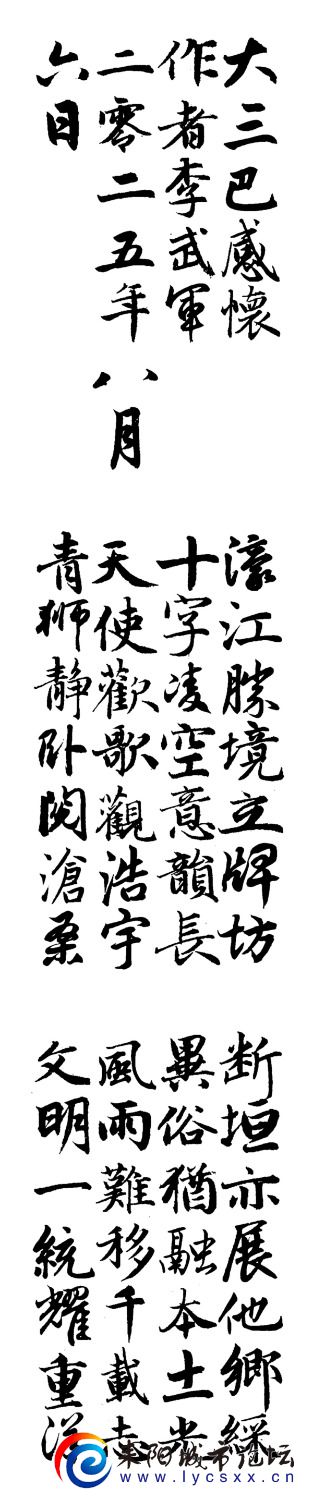 大三巴感懷
作者李武軍
二零二五年八月
六日
濠江勝境立牌坊
十字凌空意韻長
天使歡歌觀浩宇
青狮静卧阅滄桑
断垣亦展他鄉綵
異俗猶融本土光
風雨難移千載志
文明一統耀重洋
耒阳城市论坛
www.lycsxx.cn